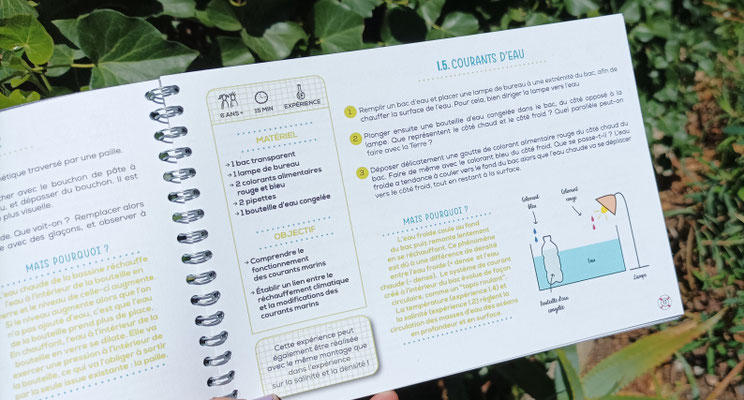 étique traversé par une paille.
cher avec le bouchon de pâte à
u, et dépasser du bouchon. Il est
plus visuelle.
de. Que voit-on ? Remplacer alors
e avec des glaçons, et observer à
MAIS POURQUOI ?
eau chaude de la bassine réchauffe
l'eau à l'intérieur de la bouteille en
rre et le niveau de celle-ci augmente.
Si le niveau augmente alors que l'on
a pas ajouté d'eau, c'est que l'eau
de la bouteille prend plus de place.
En chauffant, l'eau à l'intérieur de la
bouteille en verre se dilate. Elle va
exercer une pression à l'intérieur de
la bouteille, ce qui va l'obliger à sortir
par la seule issue existante : la paille.
6 ANS+
15 MIN
EXPÉRIENCE
MATÉRIEL
→ 1 bac transparent
→ 1 lampe de bureau
→ 2 colorants alimentaires
rouge et bleu
→ 2 pipettes
→ 1 bouteille d'eau congelée
OBJECTIF
→ Comprendre le
fonctionnement
des courants marins
→ Établir un lien entre le
réchauffement climatique
et la modifications des
courants marins
Cette expérience peut
également être réalisée
avec le même montage que
dans l'expérience
sur la salinité et la densité !
1.5. COURANTS D'EAU
1 Remplir un bac d'eau et placer une lampe de bureau à une extrémité du bac, afin de
chauffer la surface de l'eau. Pour cela, bien diriger la lampe vers l'eau
2 Plonger ensuite une bouteille d'eau congelée dans le bac, du côté opposé à la
lampe. Que représentent le côté chaud et le côté froid ? Quel parallèle peut-on
faire avec la Terre ?
3 Déposer délicatement une goutte de colorant alimentaire rouge du côté chaud du
bac. Faire de même avec le colorant bleu du côté froid. Que se passe-t-il ? L'eau
froide a tendance à couler vers le fond du bac alors que l'eau chaude va se déplacer
vers le côté froid, tout en restant à la surface.
MAIS POURQUOI ?
L'eau froide coule au fond
du bac puis remonte lentement
en se réchauffant. Ce phénomène
est dû à une différence de densité
entre l'eau froide (+ dense) et l'eau
chaude (- dense). Le système de courant
créé à l'intérieur du bac évolue de façon
circulaire, comme un "tapis roulant".
La température (expérience 1.4) et
la salinité (expérience 1.2) règlent la
circulation des masses d'eau des océans
en profondeur et en surface.
Colorant
bleu
Colorant
rouge
Eau
Lampe
Bouteille d'eau
congelée